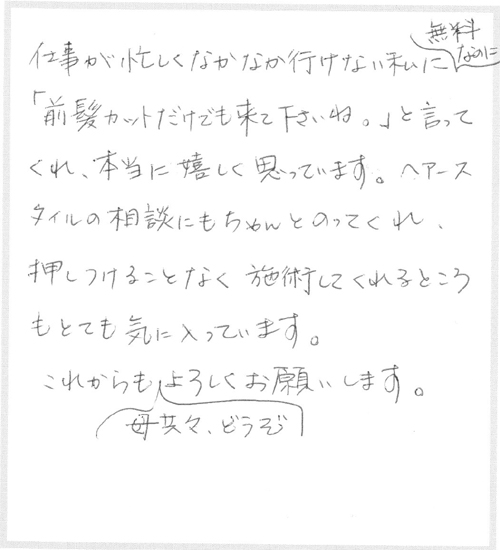 無料
なのに
仕事が忙しくなかなか行けない私に
「前髪カットだけでも来て下さいね。」と言って
くれ、本当に嬉しく思っています。ヘアース
タイルの相談にもちゃんとのってくれ、
押しつけることなく施術してくれるところ
もとても気に入っています。
これからもよろしくお願いします。
母共々、どうぞ